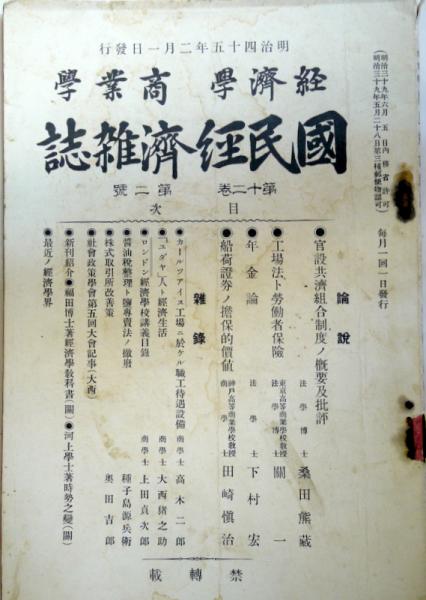 行發日一月二年五十四治明
學業商　學濟經
誌雜濟經民國
號二第　卷二十第
次目
明治三十九年六月五日內務省許可
明治三十九年五月二十八日第三種郵便物認可
每月一回一日發行
論說
●官設共濟組合制度ノ槪要及批評　法學博士　桑田熊藏
●工場法ト勞働者保險　東京高等商業學校敎授　法學博士　關一
●年金論　法學士　下村宏
●船荷證券ノ擔保的價値　神戶高等商業學校敎授　商學士　田崎愼治
雜錄
●カールツアイス工場ニ於ケル職工待遇設備　商學士　高木二郞
●「ユダヤ」人ト經濟生活　商學士　大西猪之助
●ロンドン經濟學校講義目錄　商學士　上田貞次郞
●醬油稅整理ト鹽專賣法ノ撤廢　種子島源兵衛
●株式取引所改善策　奧田吉郞
●社會政策學會第五回大會記事（大西）
●新刊紹介●福田博士著經濟學敎科書（關）●河上學士著時勢之變（關）
●最近ノ經濟學界
載轉禁